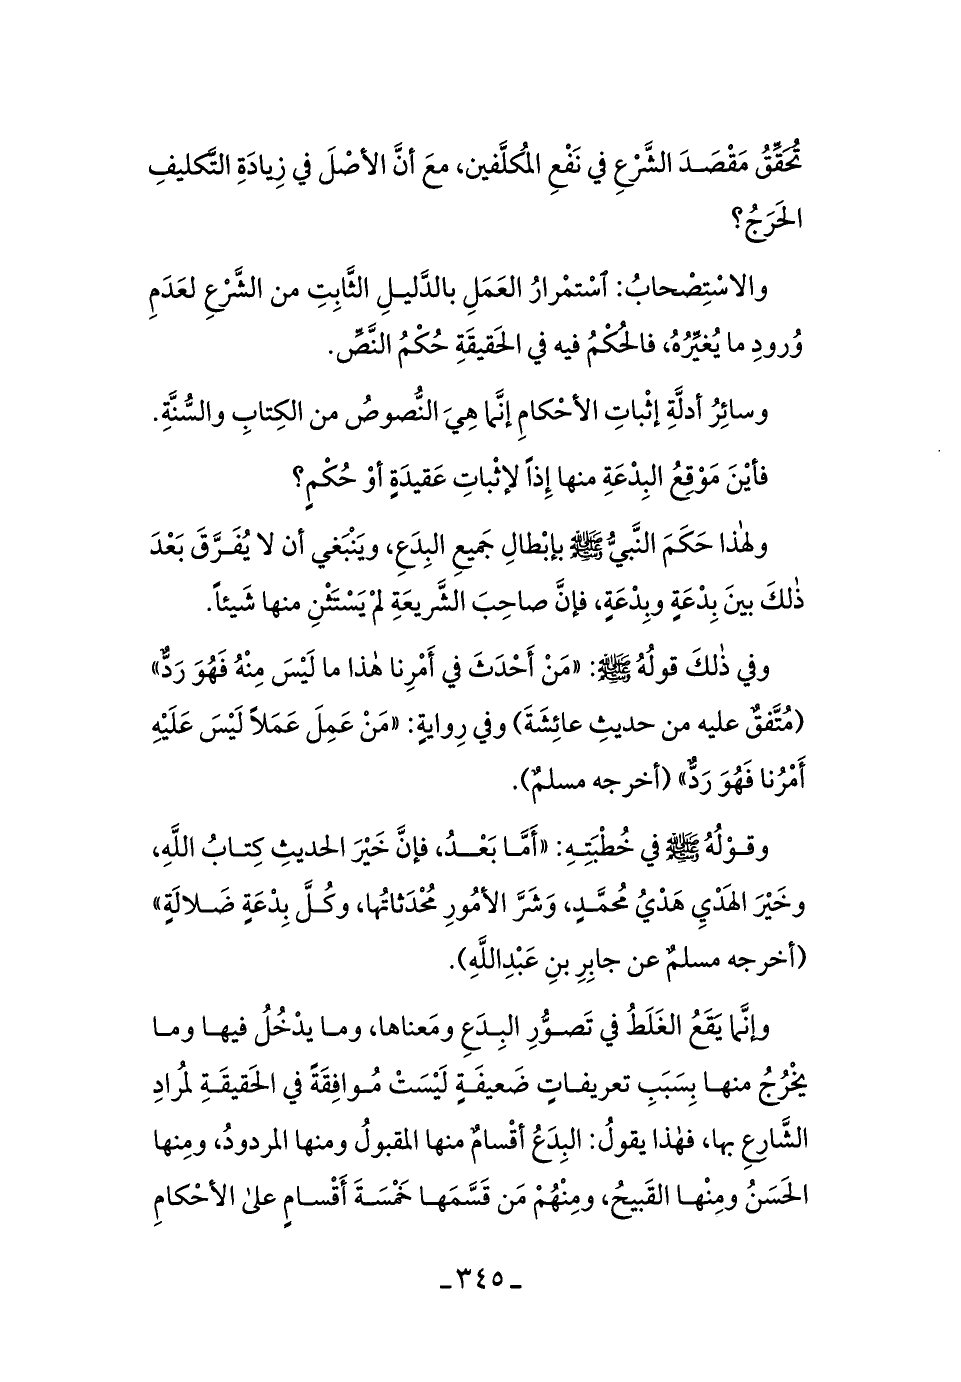 تُحَقِّقُ مَقْصَدَ الشَّرْعِ في نَفْعِ المُكلَّفين، معَ أنَّ الأصْلَ في زِيادَةِ التَّكليفِ
الحَرَجُ؟
والاسْتِصْحابُ: ٱسْتمْرارُ العَمَلِ بالدَّليلِ الثَّابِتِ من الشَّرْعِ لعَدَمِ
وُرودِ ما يُغيِّرُهُ، فالحُكْمُ فيه في الحَقيقَةِ حُكْمُ النَّصِّ.
وسائِرُ أدلَّةِ إثْباتِ الأحْكامِ إنَّما هِيَ النُّصوصُ من الكِتابِ والسُّنَّةِ.
فأيْنَ مَوْقِعُ البِدْعَةِ منها إذاً لإثْباتِ عَقيدَةٍ أوْ حُكْمٍ؟
ولهٰذا حَكَمَ النَّبيُّ ﷺ بإبْطالِ جَميعِ البِدَعِ، ويَنْبَغي أن لا يُفَرَّقَ بَعْدَ
ذٰلكَ بينَ بِدْعَةٍ وبِدْعَةٍ، فإنَّ صاحِبَ الشَّريعَةِ لمْ يَسْتَثْنِ منها شَيئاً.
وفي ذٰلكَ قولُهُ ﷺ: «مَنْ أَحْدَثَ في أَمْرِنا هٰذا ما لَيْسَ مِنْهُ فَهُوَ رَدٌّ»
(مُتَّفقٌ عليه من حديثِ عائِشَةَ) وفي رِوايةٍ: «مَنْ عَمِلَ عَمَلاً لَيْسَ عَلَيْهِ
أَمْرُنا فَهُوَ رَدٌّ» (أخرجه مسلمٌ).
وقوْلُهُ ﷺ في خُطْبَتِهِ: «أَمَّا بَعْدُ، فإنَّ خَيْرَ الحديثِ كِتابُ اللَّهِ،
وخَيْرَ الهَدْيِ هَدْيُ مُحمَّدٍ، وَشَرَّ الأمُورِ مُحْدَثاتُها، وكُلَّ بِدْعَةٍ ضَلالَةٍ»
(أخرجه مسلمٌ عن جابِرِ بنِ عَبْدِاللَّهِ).
وإنَّما يَقَعُ الغَلَطُ في تَصوُّرِ البِدَعِ ومَعناها، وما يدْخُلُ فيها وما
يخْرُجُ منها بِسَبَبِ تعريفاتٍ ضَعيفَةٍ لَيْسَتْ مُوافِقَةً في الحَقيقَةِ لمُرادِ
الشَّارِعِ بها، فهٰذا يقولُ: البِدَعُ أقْسامٌ منها المقبولُ ومنها المردودُ، ومِنها
الحَسَنُ ومِنْها القَبيحُ، ومِنْهُمْ مَن قَسَّمَها خَمْسَةَ أَقْسامٍ علىٰ الأحْكامِ
ـ ٣٤٥ ـ